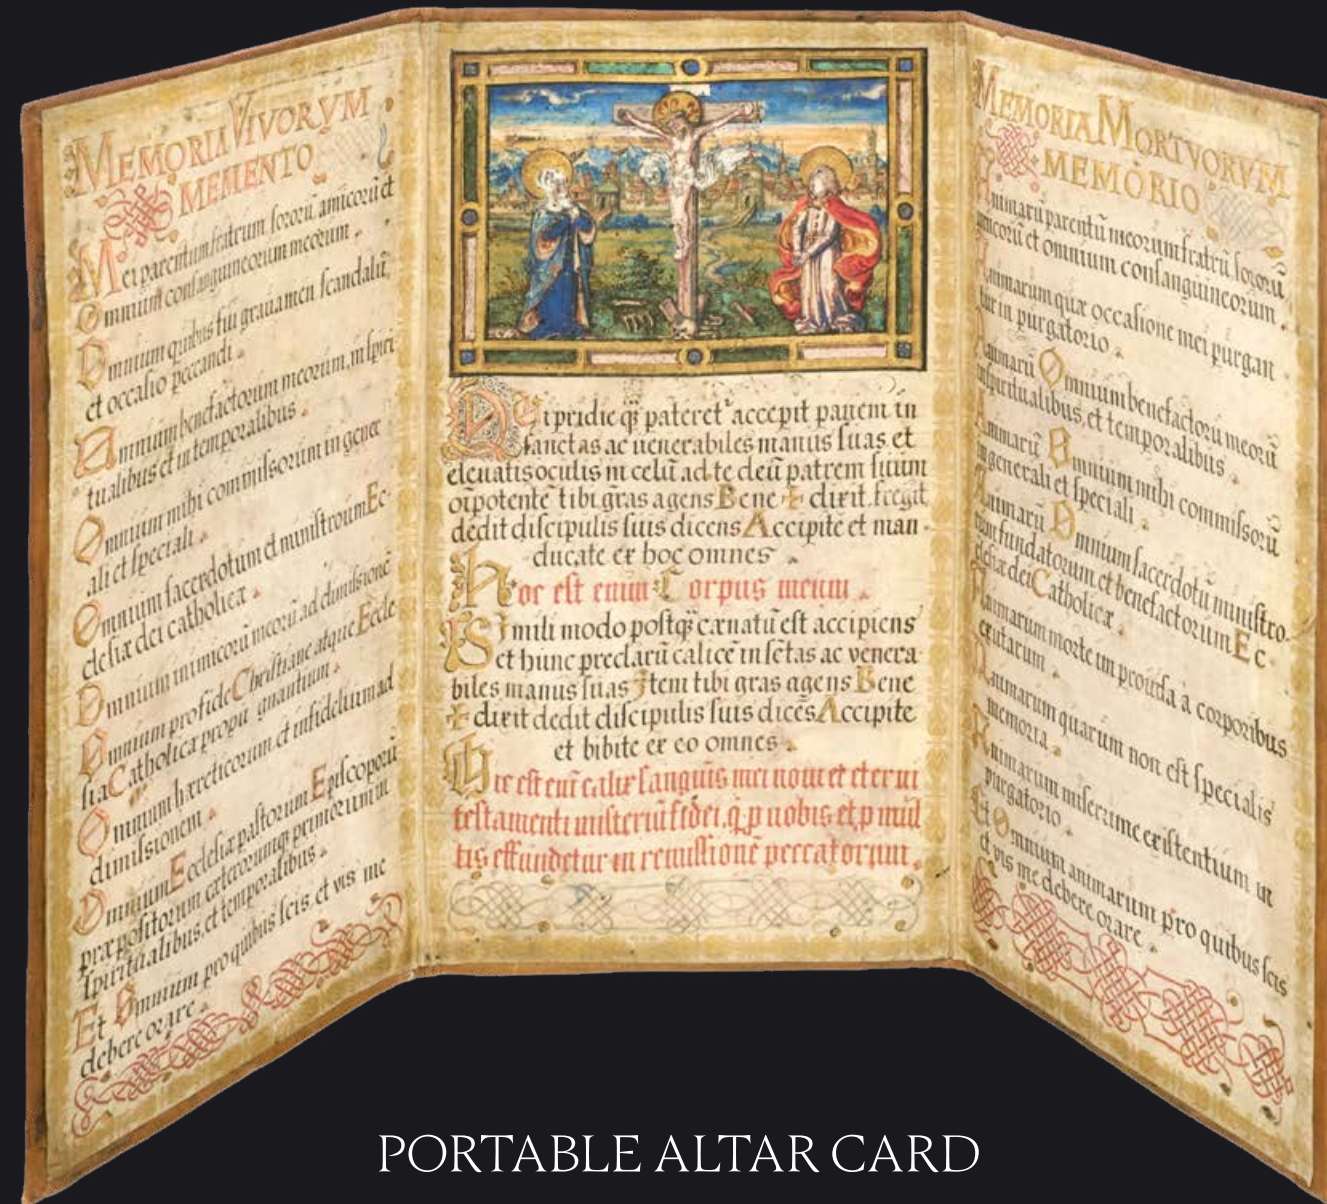 MEMORIA VIVORVM
MEMENTO
Mei parentum fratrum sororũ amicorũ et
Omnium consanguineorum meorum.
Omnium quibus fui grauamen scandalũ,
et occasio peccandi.
Omnium benefactorum meorum, in spiri
tualibus et in temporalibus.
Omnium mihi commissorum in gener
ali et speciali.
Omnium sacerdotum et ministroum Ec-
clesiæ dei catholicæ.
Omnium inimicorũ meorũ ad dimissionẽ
Omnium pro fide Christiane atque Eccle
sia Catholica propugnantium.
Omnium hæreticorum et infidelium ad
dimissionem.
Omnium Ecclesiæ pastorum Episcoporũ
præpositorum cæterorumq; primorum in
spiritualibus, et temporalibus.
Et Omnium pro quibus scis, et vis me
debere orare.
Qui pridie q̃ pateret' accepit panem in
sanctas ac uenerabiles manus suas et
eleuatis oculis in celũ ad te deũ patrem suum
oı̃potentẽ tibi gras agens Bene ✠ dixit. fregit
dedit discipulis suis dicens Accipite et man-
ducate ex hoc omnes.
Hoc est enim Corpus meum.
Simili modo postq̃ cænatũ est accipiens
et hunc preclarũ calicẽ in sc̃tas ac venera
biles manus suas Item tibi gras agens Bene
✠ dixit dedit discipulis suis dicẽs Accipite
et bibite ex eo omnes.
Hic est enĩ calix sanguis mei noui et eterni
testamenti misteriũ fidei. q̃ p nobis et p mul
tis effundetur in remissionẽ peccatorum.
MEMORIA MORTVORVM
MEMORIO
Animarũ parentũ meorum fratrũ sororũ
amicorũ et omnium consanguineorum.
Animarum quæ occasione mei purgan
tur in purgatorio.
Animarũ Omnium benefactorũ meorũ
in spiritualibus, et temporalibus.
Animarũ Omnium mihi commissorũ
in generali et speciali.
Animarũ Omnium sacerdotũ ministro-
rum fundatorum et benefactorum Ec-
clesiæ dei Catholicæ.
Animarum morte im prouisa à corporibus
exutarum.
Animarum quarum non est specialis
memoria.
Animarum miserrime existentium in
purgatorio.
Et Omnium animarum pro quibus scis
et vis me debere orare.
PORTABLE ALTAR CARD